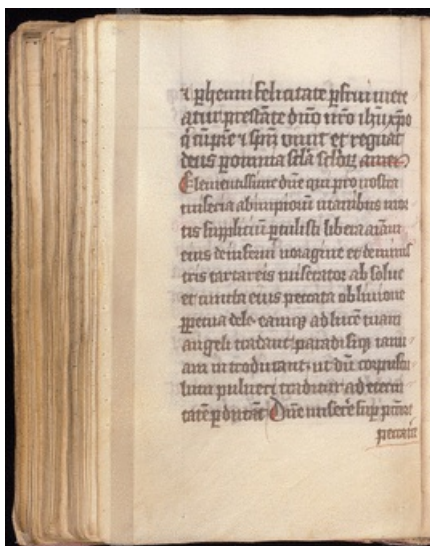 ⁊ ꝑhenni felicitate ꝑfrui mere
atur prestāte dn̄o nr̄o ih̄u xp̄o
q̄ cū pr̄e ⁊ sp̄u viuit et regnat
deus ꝑ omnia sc̄la sc̄loꝝ amen
Clementissime dn̄e qui pro nostra
miseria ab impiorū manibus mor
tis suppliciū ꝑtulisti libera aīam
eius de inferni uoragine et de minis
tris tartareis miserator absolue
et cuncta eius peccata obliuione
ꝑpetua dele eamqꝫ ad lucē tuam
angeli tradant paradisiqꝫ ianu
am introducant ut dū corpuscu
lum pulueri traditur ad eterni
tatē ꝑducāt Dn̄e miserē suꝑ